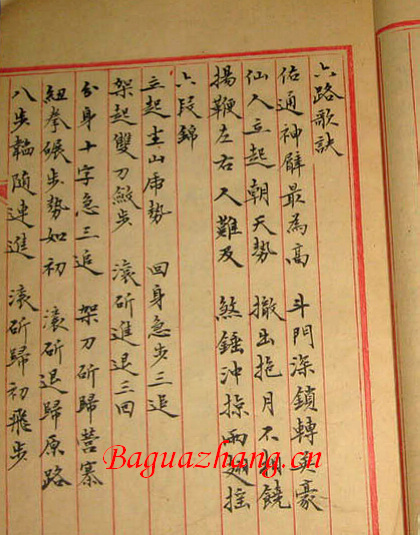 六路歌訣
佑通神臂最為高 斗門深鎖轉英豪
仙人立起朝天勢 撤出抱月不饒
揚鞭左右人難及 煞錘沖兩翅摇
六段錦
立起坐山虎勢 回身急步三追
架起雙刀歛步 滚斫進退三回
分身十字急三追 架刀斫歸營寨
紐拳碾步勢如初 滚斫退歸原路
八步随連進 滚斫歸初飛步
Baguazhang.cn